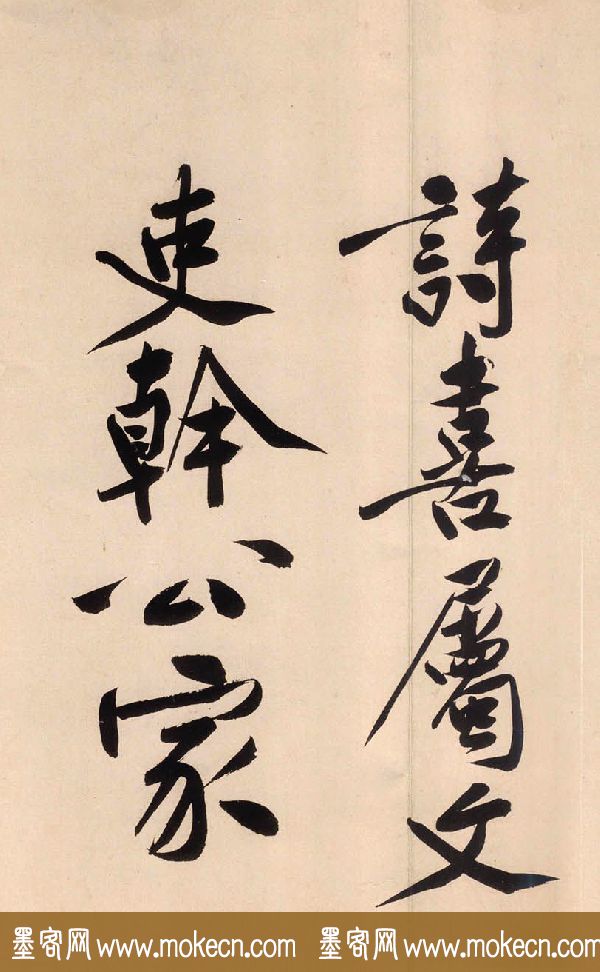 詩喜屬文
吏幹公家
墨客网 www.mokecn.com 墨客网 www.mokecn.com